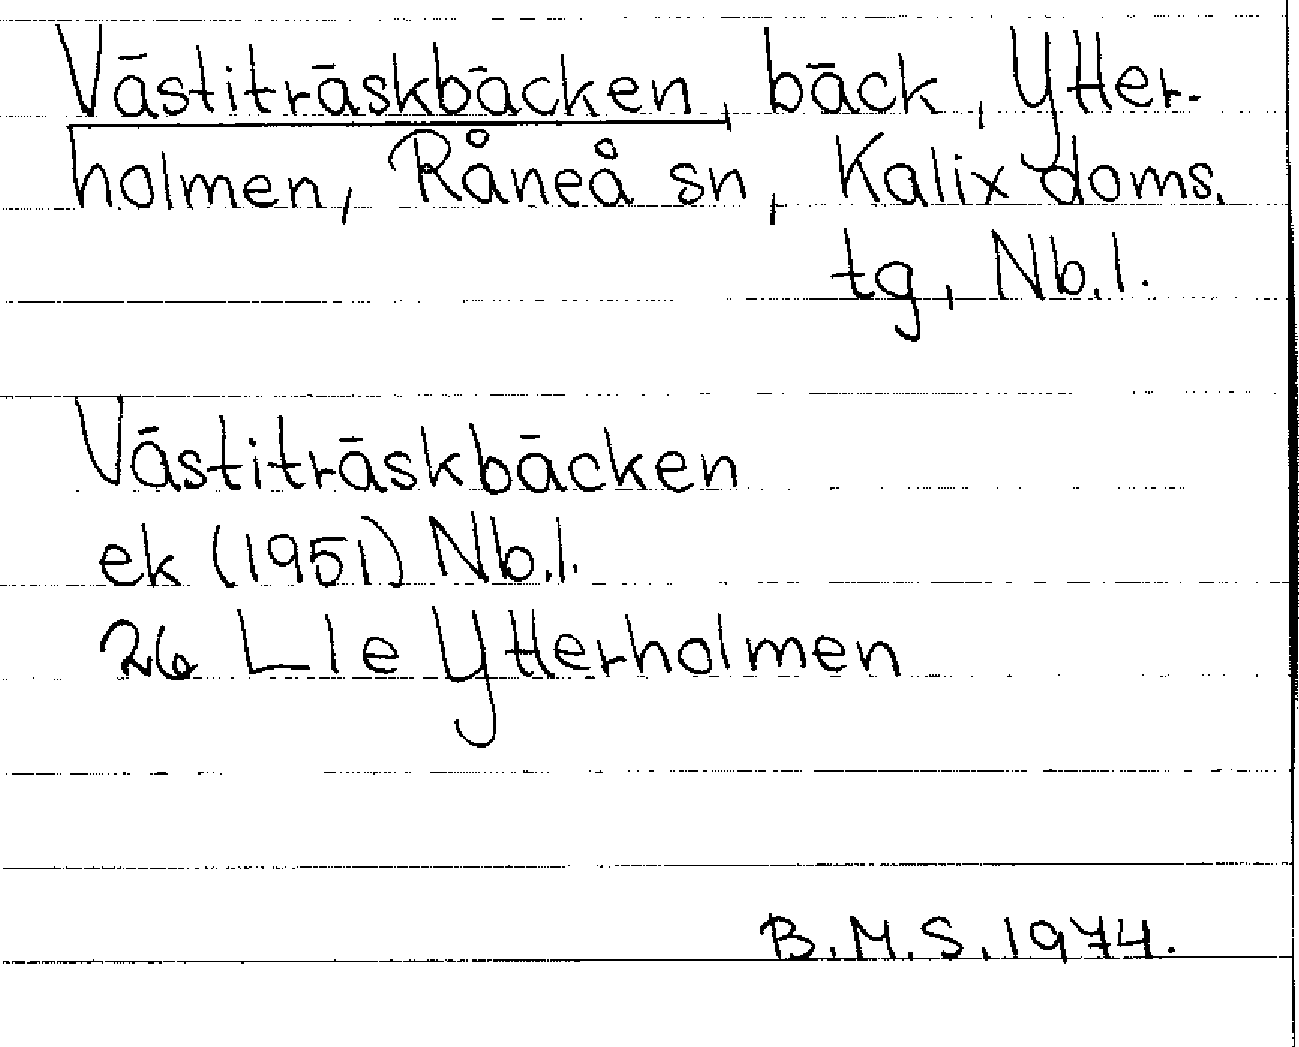 Västiträskbäcken, bäck, Ytter-
holmen, Råneå sn, Kalix doms.
tg, Nb.l.
Västiträskbäcken
ek (1951) Nb.l.
26 L 1e Ytterholmen
B.M.S. 1974.